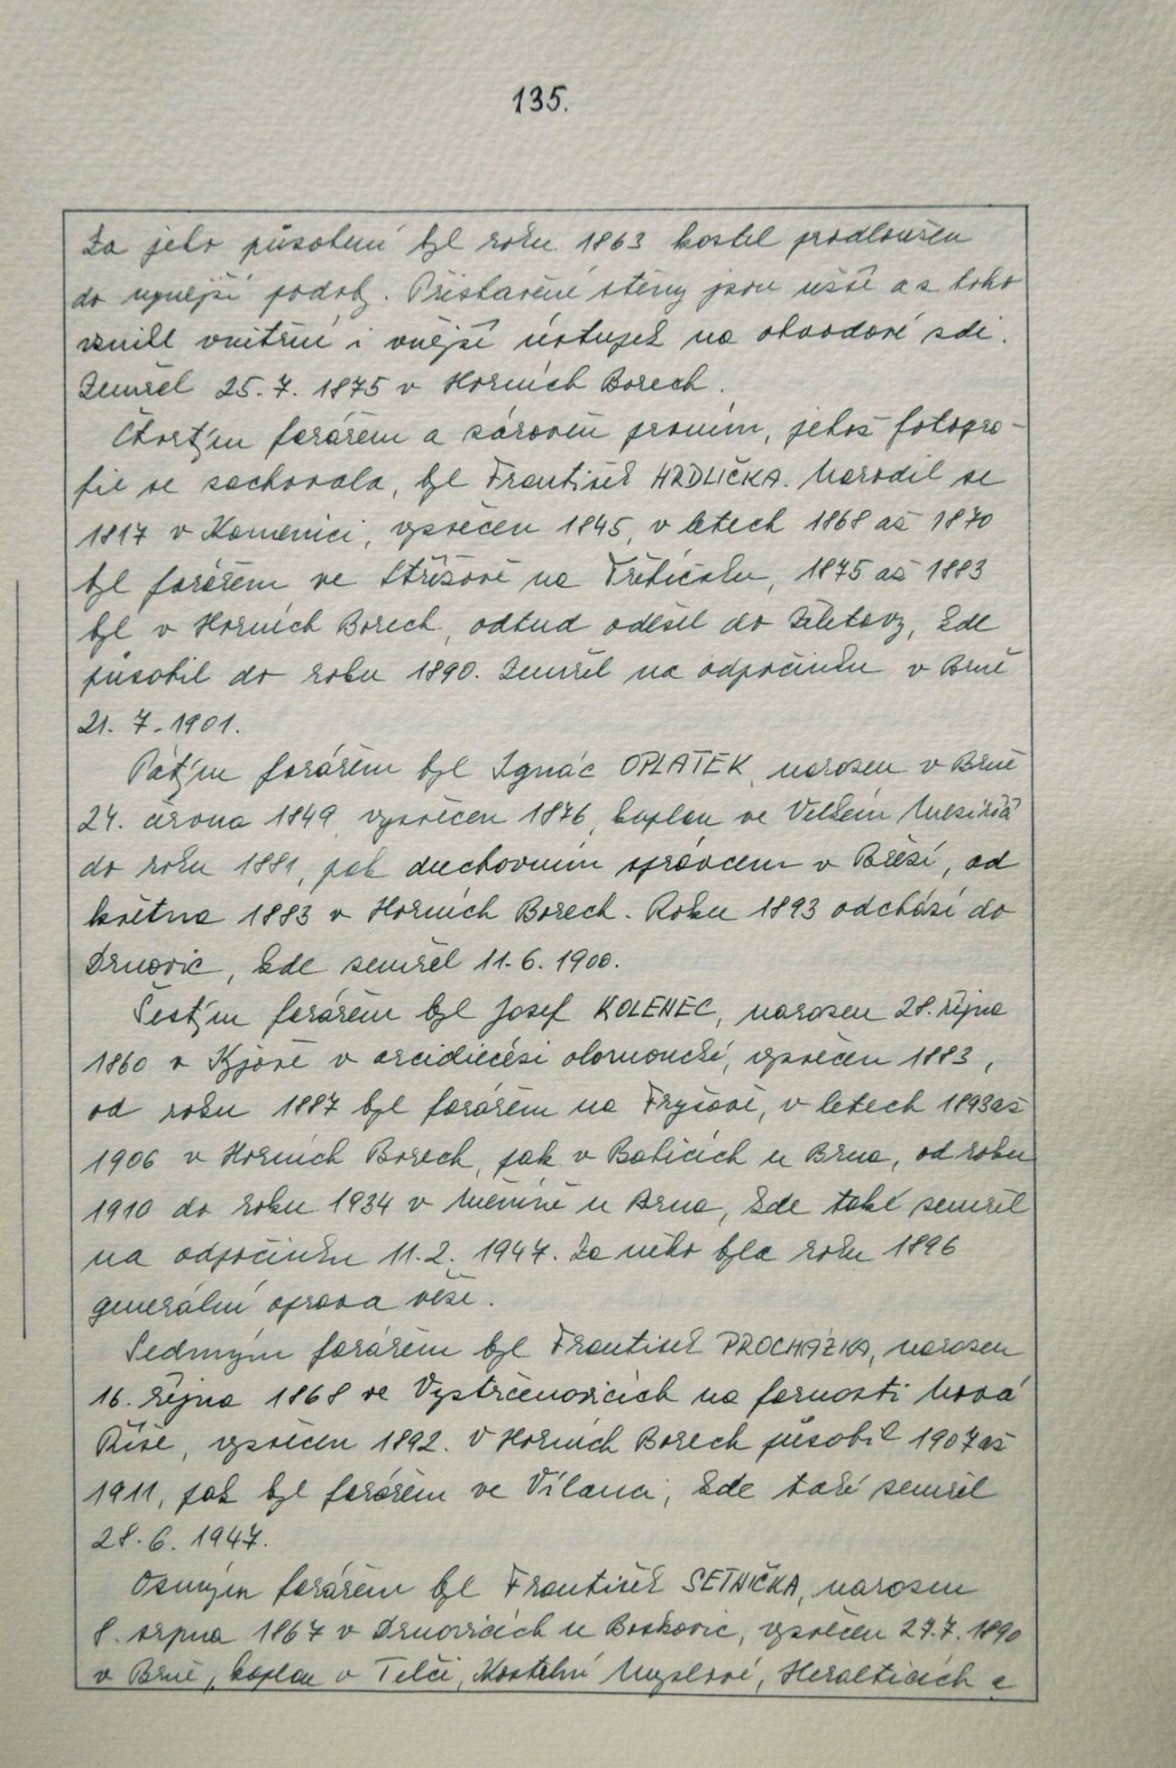 135.
Za jeho působení byl roku 1863 kostel prodloužen
do nynější podoby. Přistavěné stěny jsou užší a z toho
vznikl vnitřní i vnější ústupek na obvodové zdi.
Zemřel 25. 7. 1875 v Horních Borech.
Čtvrtým farářem a zároveň prvním, jehož fotogra-
fie se zachovala, byl František HRDLIČKA. Narodil se
1817 v Kamenici, vysvěcen 1845, v letech 1868 až 1870
byl farářem ve Střížově na Třebíčsku, 1875 až 1883
byl v Horních Borech, odtud odešel do Želetavy, kde
působil do roku 1890. Zemřel na odpočinku v Brně
21. 7. 1901.
Pátým farářem byl Ignác OPLATEK, narozen v Brně
24. června 1849, vysvěcen 1876, kaplan ve Velkém Meziříčí
do roku 1881, pak duchovním správcem v Březí, od
května 1883 v Horních Borech. Roku 1893 odchází do
Drnovic, kde zemřel 11. 6. 1900.
Šestým farářem byl Josef KOLENEC, narozen 28. října
1860 v Kyjově v arcidiecézi olomoucké, vysvěcen 1883,
od roku 1887 byl farářem na Fryšavě, v letech 1893 až
1906 v Horních Borech, pak v Babicích u Brna, od roku
1910 do roku 1934 v Měníně u Brna, kde také zemřel
na odpočinku 11. 2. 1947. Za něho byla roku 1896
generální oprava věže.
Sedmým farářem byl František PROCHÁZKA, narozen
16. října 1868 ve Vystrčenovicích na farnosti Nová
Říše, vysvěcen 1892. V Horních Borech působil 1907 až
1911, pak byl farářem ve Vílanci, kde také zemřel
28. 6. 1947.
Osmým farářem byl František SETNIČKA, narozen
8. srpna 1867 v Drnovicích u Boskovic, vysvěcen 27. 7. 1890
v Brně, kaplan v Telči, Kostelní Myslové, Heralticích a